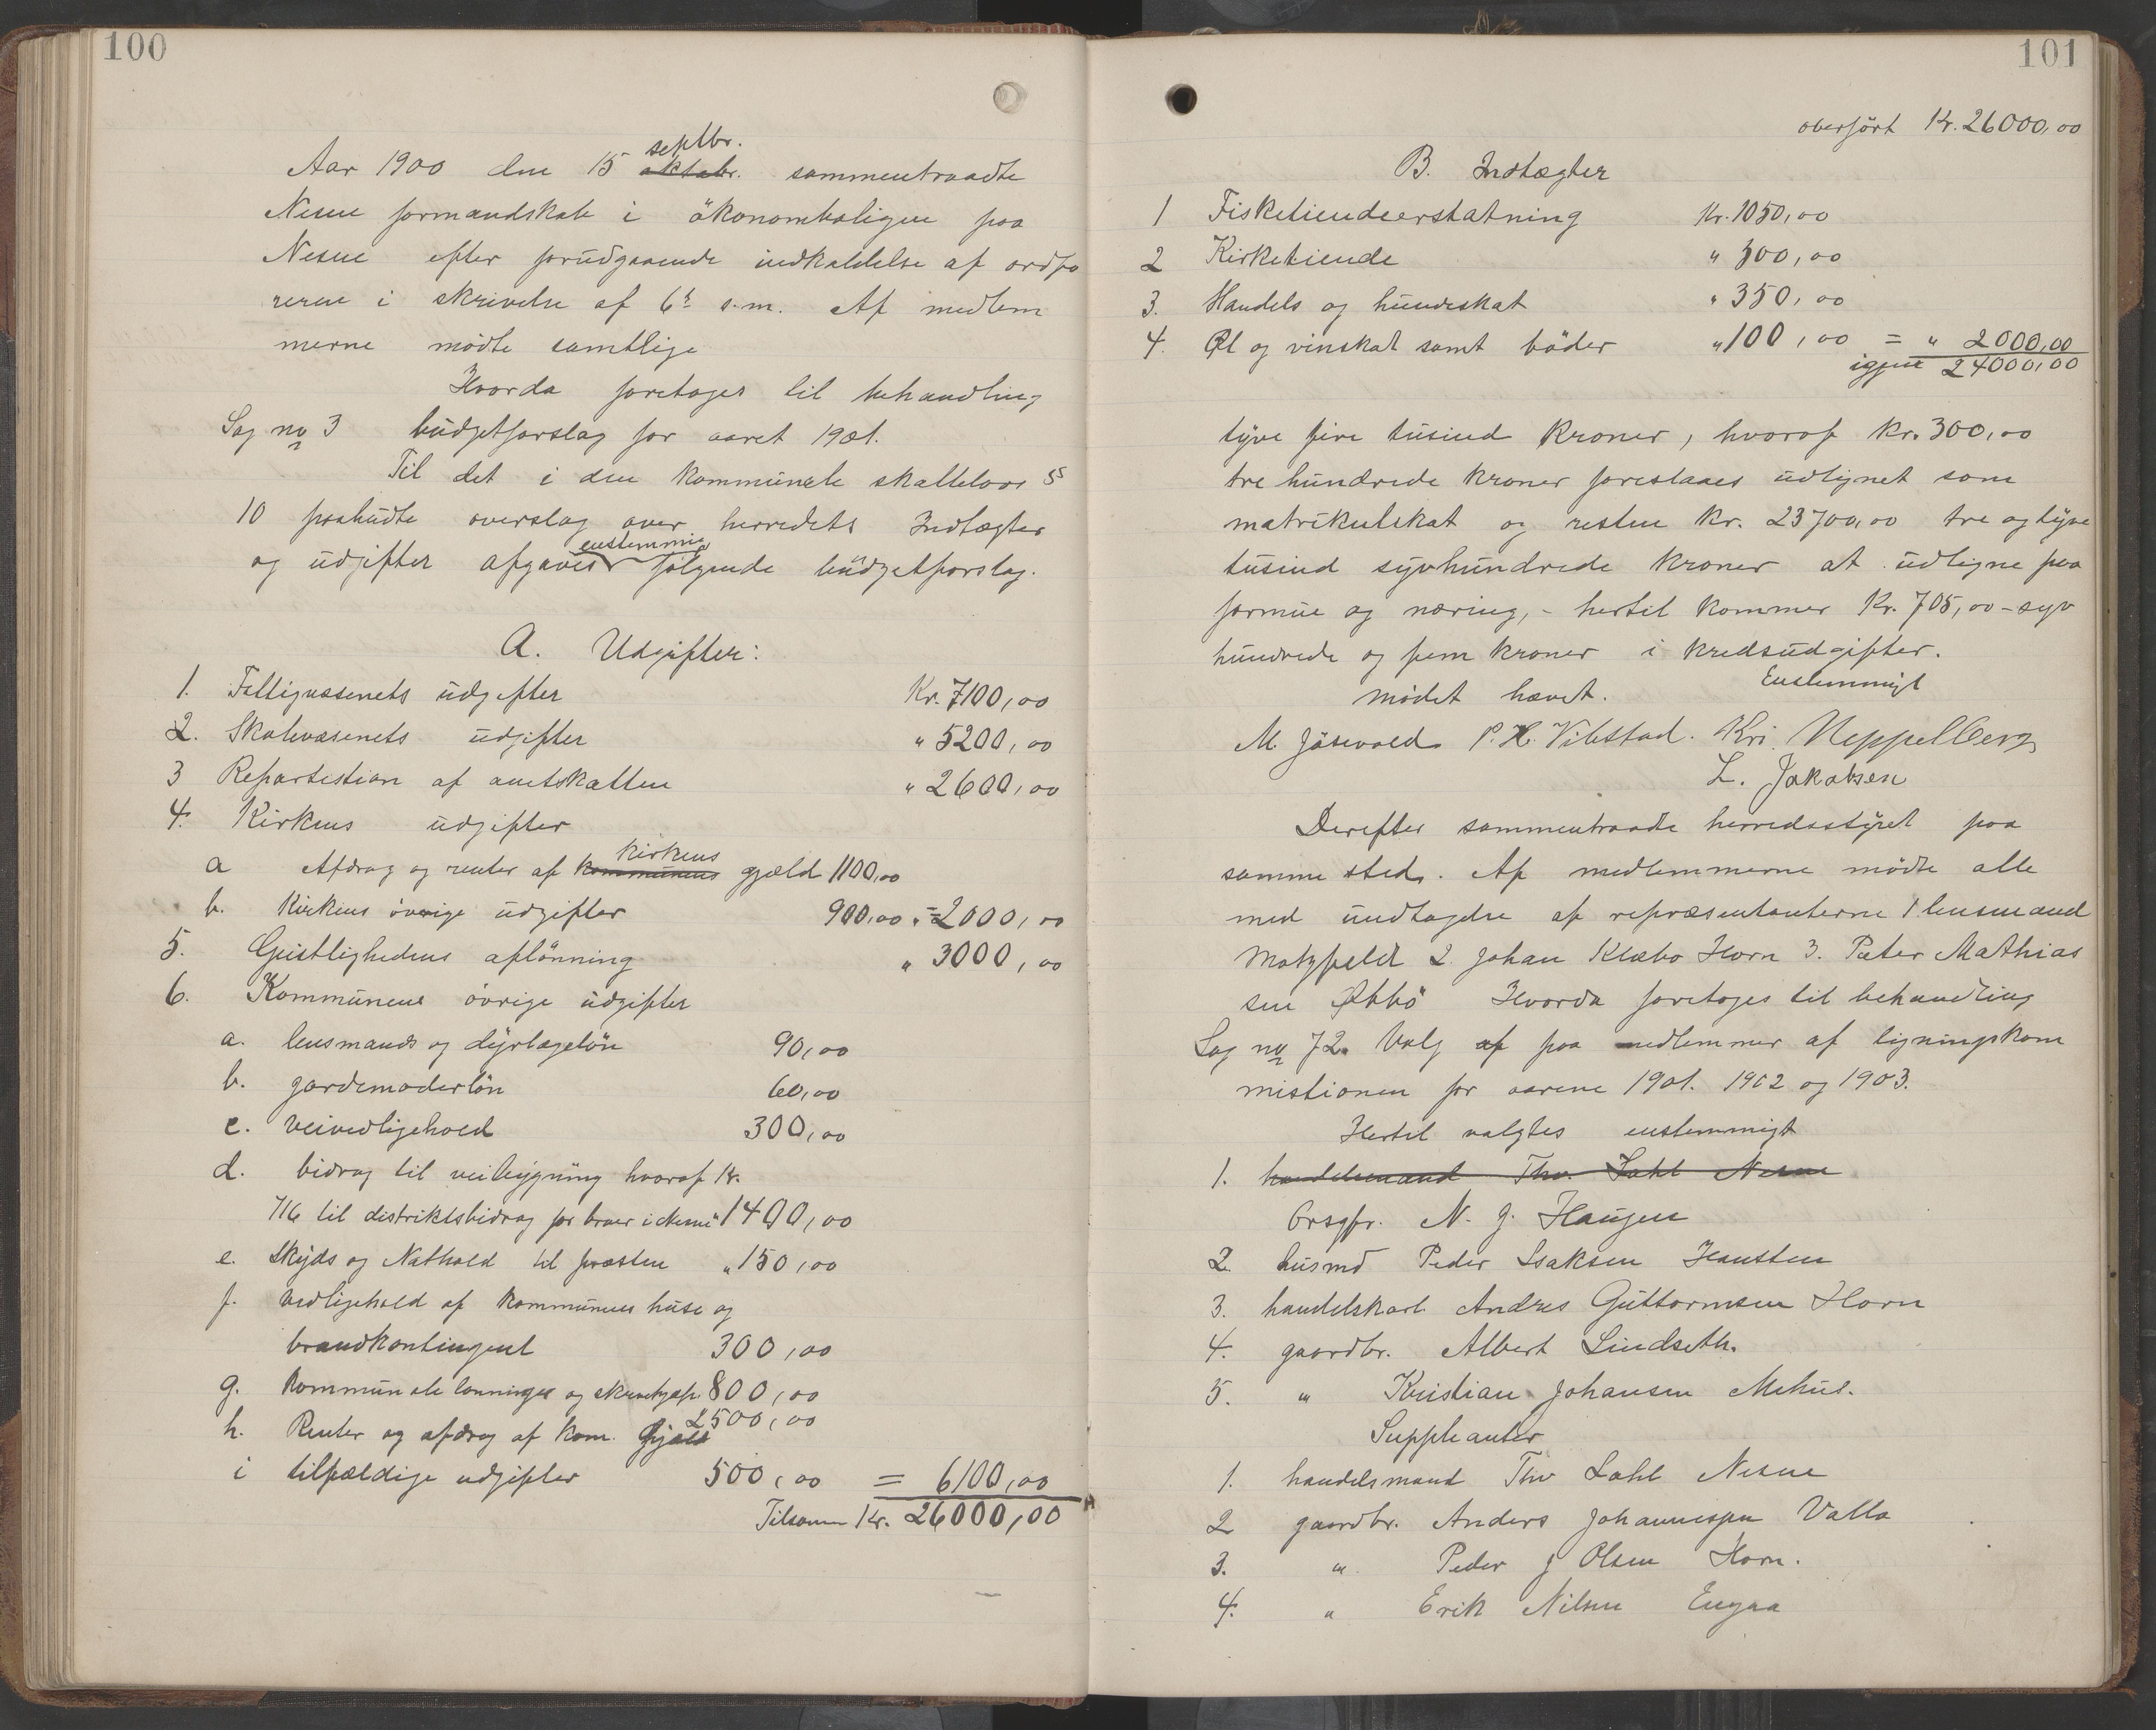 100
Aar 1900 den 15 oktobr. septbr. sammentraadte
Nesne formandskab i ökonomboligen paa
Nesne efter forudgaaende indkaldelse af ordfö
reren i skrivelse af 6te s.m. Af medlem
merne mödte samtlige
Hvorda foretoges til behandling
Sag no 3 budgetforslag for aaret 1901.
Til det i den kommunale skattelovs §
10 paabudte overslag over herredets Indtægter
og udgifter afgaves enstemmig följende budgetforslag.
A. Udgifter:
1. Fattigvæsenets udgifter Kr. 7100,00
2. Skolevæsenets udgifter " 5200,00
3 Repartistion af amtskatten " 2600,00
4. Kirkens udgifter
a Afdrag og renter af kommunens kirkens gjæld 1100,00
b. Kirkens övrige udgifter 900,00 " = 2000,00
5. Geistlighedens aflönning " 3000,00
6. Kommunens övrige udgifter
a. lensmands og dyrlægelön 90,00
b. jordemoderlön 60,00
c. veivedligehold 300,00
d. bidrag til veibygning hvoraf Kr.
716 til distriktsbidrag for broer i Nesne 1400,00
e. Skyds og Nathold til præsten " 150,00
f. vedligehold af kommunens huse og
brandkontingent 300,00
g. Kommunale lönninger og skrivehjælp 800,00
h. Renter og afdrag af kom. Gjæld 2500,00
i tilfældige udgifter 500,00 = 6100,00
Tilsamm Kr. 26000,00
101
overfört Kr. 26000,00
B. Indtægter
1 Fisketiendeerstatning Kr. 1050,00
2 Kirketiende " 500,00
3. Handels og hundeskat " 350,00
4. Øl og vinskat samt böder " 100,00 = " 2000,00
igjen 24000,00
tyve fire tusind Kroner, hvoraf Kr. 300,00
tre hundrede kroner foreslaaes udlignet som
matrikulskat og resten Kr. 23700,00 tre og tyve
tusind syvhundrede kroner at udligne paa
formue og næring, - hertil kommer Kr. 705,00 - syv
hundrede og fem kroner i kredsudgifter.
Enstemmigt
Mödet hævet.
M. Jösevold P. H. Vikstad. Kri. Neppelberg
L. Jakobsen
Derefter sammentraadte herredsstyret paa
samme sted. Af medlemmerne mödte alle
med undtagelse af repræsentanterne 1 lensmand
Motzfeldt 2. Johan Klæbo Horn 3. Peter Mathias
sen Økbö Hvorda foretoges til behandling
Sag no 72. Valg af paa medlemmer af ligningskom
mistionen for aarene 1901. 1902 og 1903.
Hertil valgtes enstemmigt
1. handelsmand Thv. Dahl Nesne
Orsgfr. N. J. Haugen
2. husmd Peder Isaksen Hansten
3. handelskarl Andres Guttormsen Horn
4. gaardbr. Albert Lindseth.
5. " Kristian Johansen Mehus.
Suppleanter
1. handelsmand Thv Dahl Nesne
2 gaardbr. Anders Johannesen Valla
3. " Peder J Olsen Horn.
4. " Erik Nilsen Engaa